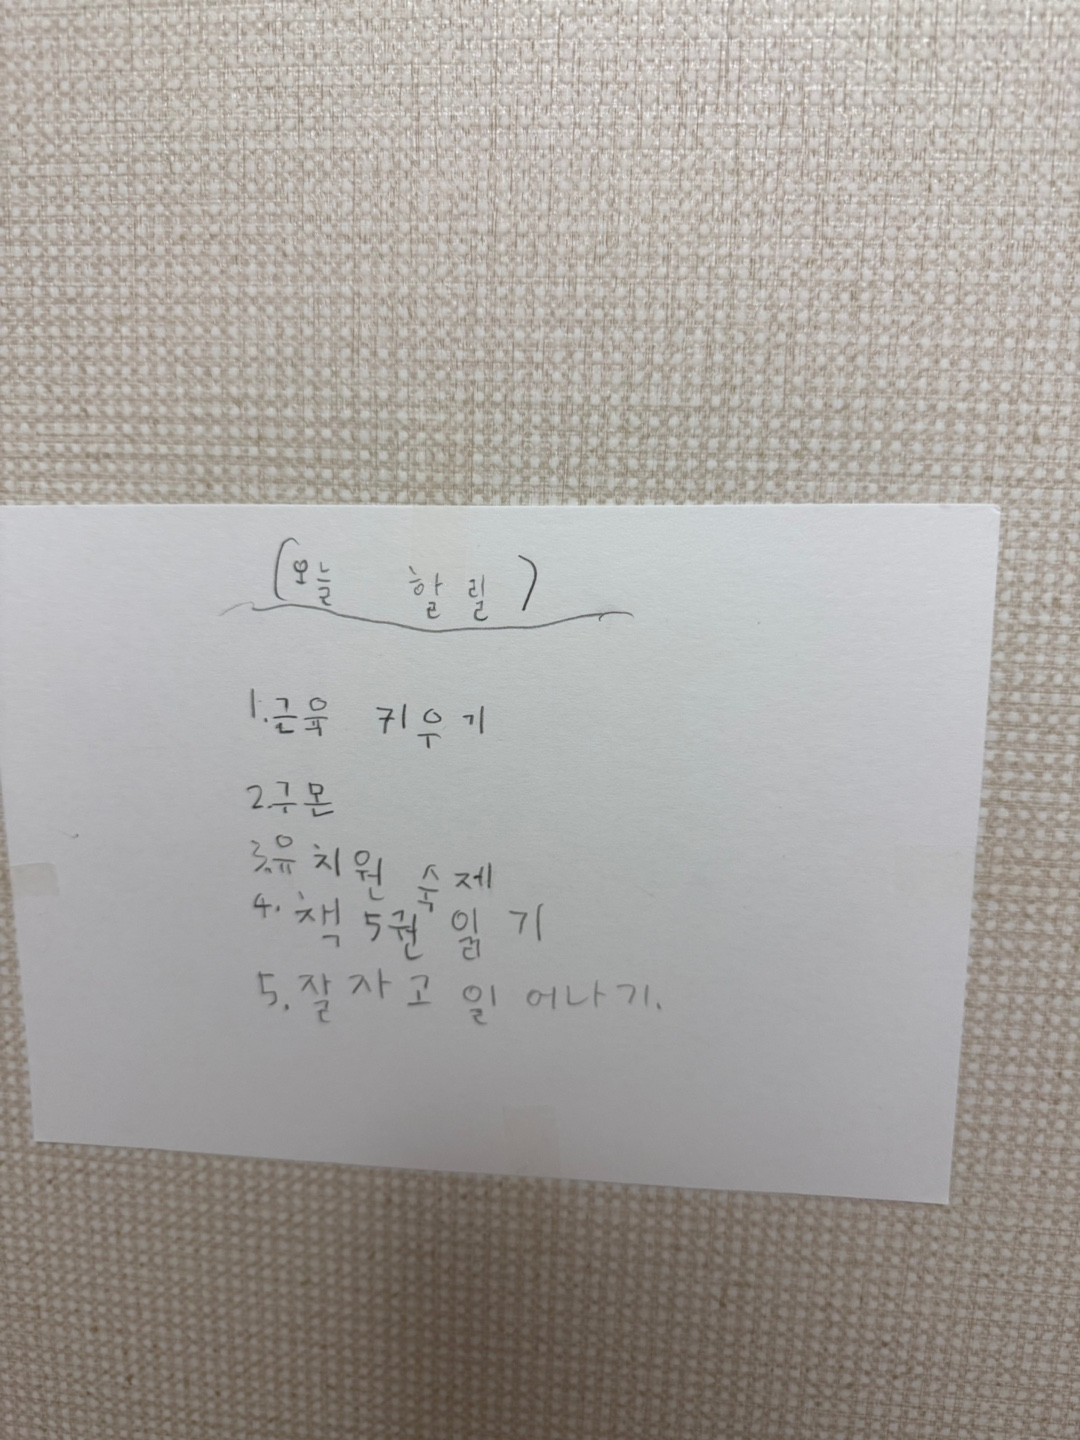 (오늘 할릴)
1.근육 키우기
2.구몬
3.유치원 숙제
4. 책 5권 읽기
5. 잘 자고 일어나기.